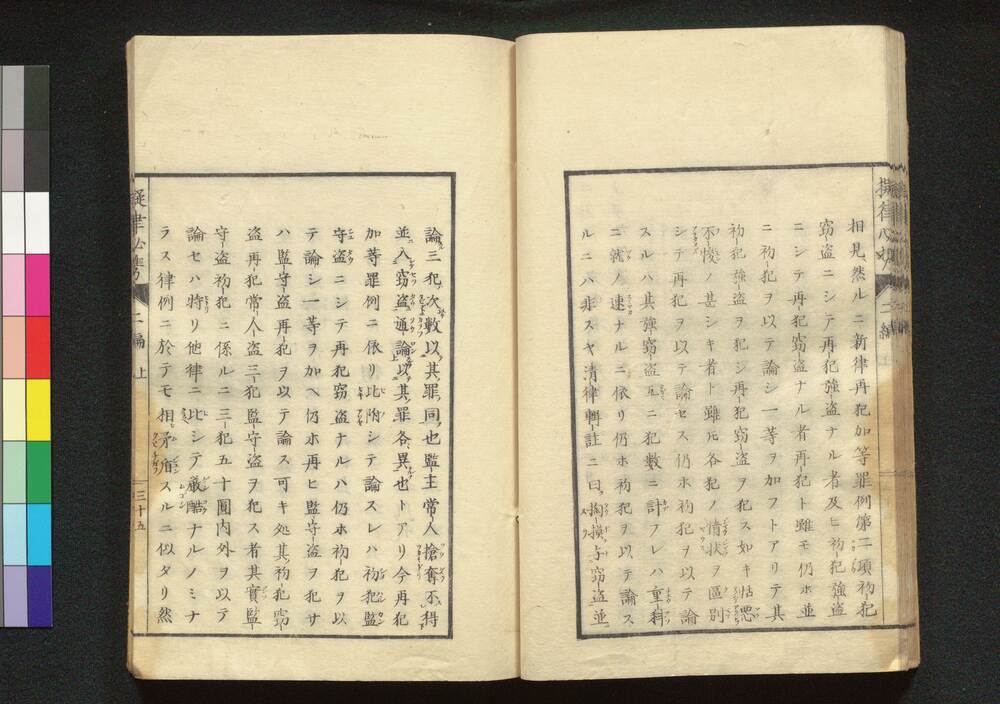 相見ル然ルニ新律再犯加等罪例第二項初ー犯
窃盗ニシテ再ー犯強ー盗ナル者及ヒ初ー犯強ー盗
ニシテ再ー犯窃ー盗ナル者再ー犯ト雖モ仍ホ並
ニ初ー犯ヲ以テ論シ一等ヲ加フトアリテ其
初ー犯強ー盗ヲ犯シ再ー犯窃ー盗ヲ犯ス如キ怙ー悪
不ー悛ノ甚シキ者ト雖𪜈各犯ノ情ー状ヲ區ー別
シテ再ー犯ヲ以テ論セス仍ホ初ー犯ヲ以テ論
スルハ其強ー窃ー盗互ニ犯ー数ニ計フレハ重ー科
ニ就ノ速ナルニ依リ仍ホ初ー犯ヲ以テ論ス
ルニハ非スヤ清律輯ー註ニ曰掏ー摸与窃ー盗並
論三犯次數以其罪同也監主常人搶奪不得
並入窃盗通論以其罪各異也トアリ今再犯
加等罪例ニ依リ比附シテ論スレハ初犯監
守盗ニシテ再犯窃盗ナルハ仍ホ初ー犯ヲ以
テ論シ一等ヲ加ヘ仍ホ再ヒ監ー守ー盗ヲ犯サ
ハ監ー守ー盗再ー犯ヲ以テ論ス可キ処其初ー犯窃ー
盗再ー犯常ー人ー盗三ー犯監ー守ー盗ヲ犯ス者其實監ー
守ー盗初犯ニ係ルニ三ー犯五十圓内外ヲ以テ
論セハ特リ他律ニ比シテ嚴酷ナルノミナ
ラス律例ニ於テモ相矛盾スルニ似タリ然
二編 上
三十五